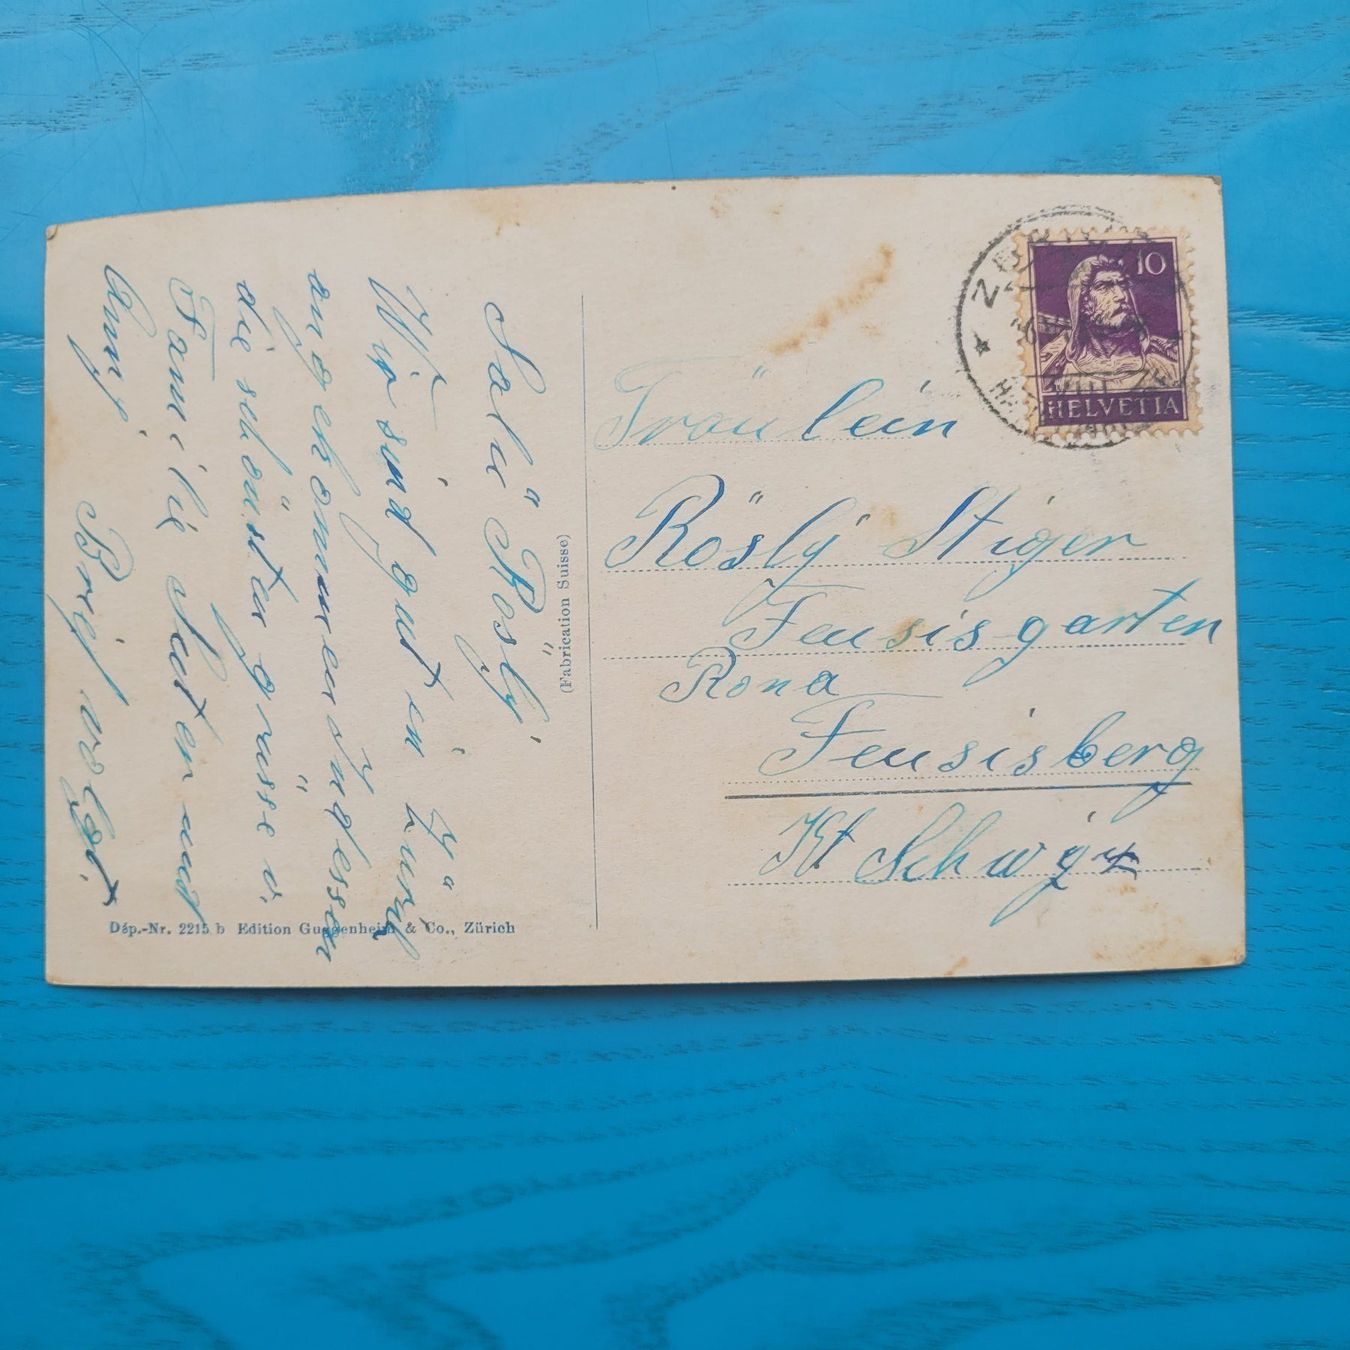 Salü Rösly
Wir sind gut in Zürich
angekommen Indessen
die schönsten grüsse v.
Familie Suter und
Anny Brief folgt.
(Fabrication Suisse)
Dép.-Nr. 2215 b Edition Guggenheim & Co., Zürich
ZÜRICH
10
HELVETIA
Fräulein
Rösly Stiger
Feusisgarten
Rona
Feusisberg
Kt Schwyz